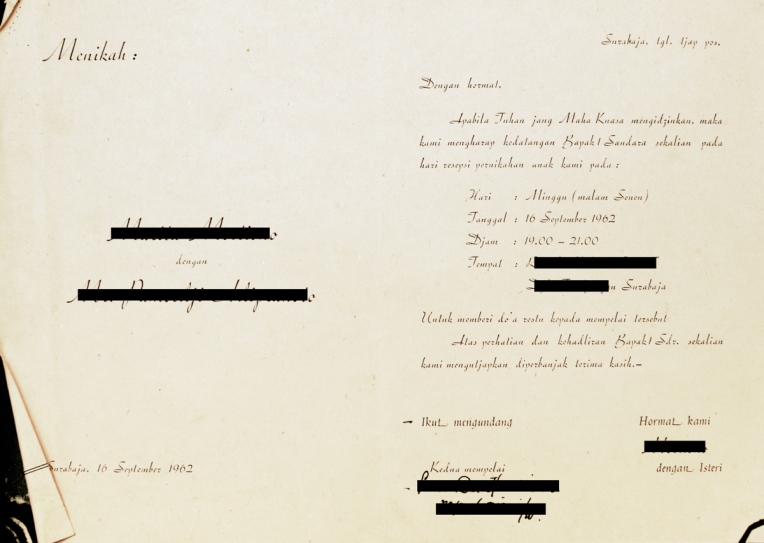 Menikah :
dengan
Surabaja, 16 September 1962
Surabaja, tgl. tjap pos.
Dengan hormat,
Apabila Tuhan jang Maha Kuasa mengidzinkan, maka
kami mengharap kedatangan Bapak/Saudara sekalian pada
hari resepsi pernikahan anak kami pada :
Hari : Minggu (malam Senen)
Tanggal : 16 September 1962
Djam : 19.00 – 21.00
Tempat :
Surabaja
Untuk memberi do'a restu kepada mempelai tersebut
Atas perhatian dan kehadliran Bapak/Sdr. sekalian
kami mengutjapkan diperbanjak terima kasih.–
Ikut mengundang
Hormat kami
Kedua mempelai
dengan Isteri